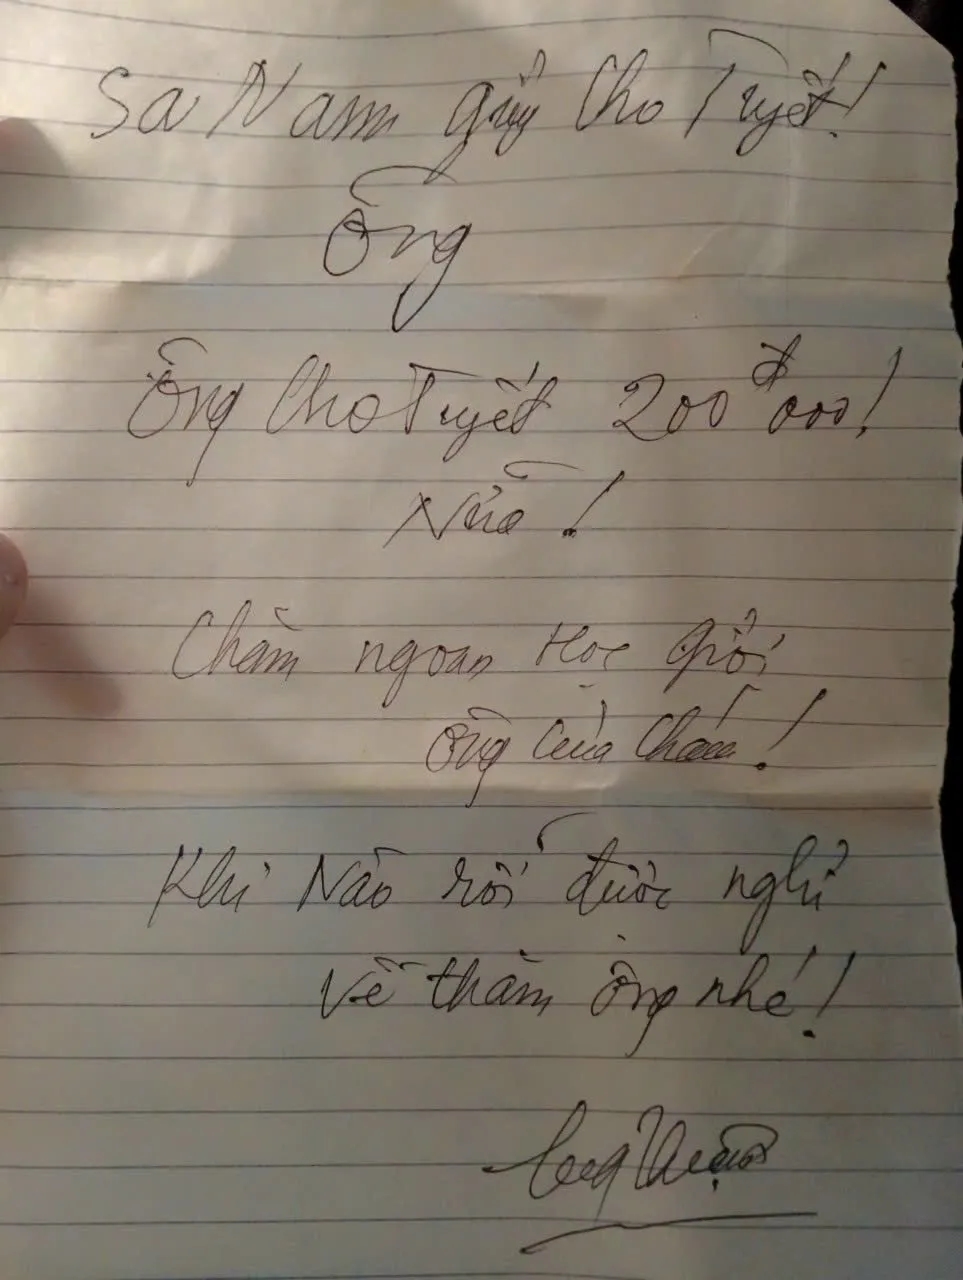 Sa Nam gửi Cho Tuyết!
Ông
Ông Cho Tuyết 200đ000!
Nữa!
Chăm ngoan Học giỏi
Ông của Cháu!
Khi Nào rồi được nghỉ
Về thăm ông nhé!